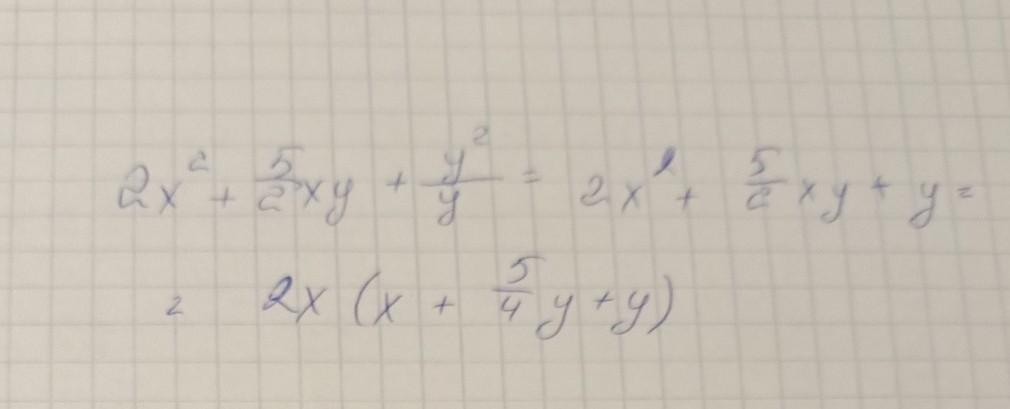 2x² + 5/2 xy + y²/y = 2x² + 5/2 xy + y =
= 2x (x + 5/4 y + y)